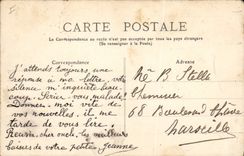 CARTE POSTALE
La Correspondance au recto n'est pas acceptée par tous les pays étrangers
(Se renseigner à la Poste)
Correspondance
Adresse
J'attends toujours une
réponse à ma lettre, votre
silence m'inquiète beau
coup. Seriez vous malade
Donnez moi vite de
vos nouvelles, il me
tarde de vous lire.
Reçois, cher oncle, les meilleurs
baisers de votre petite Jeanne
Mr B. Stella
68 Boulevard
Marseille